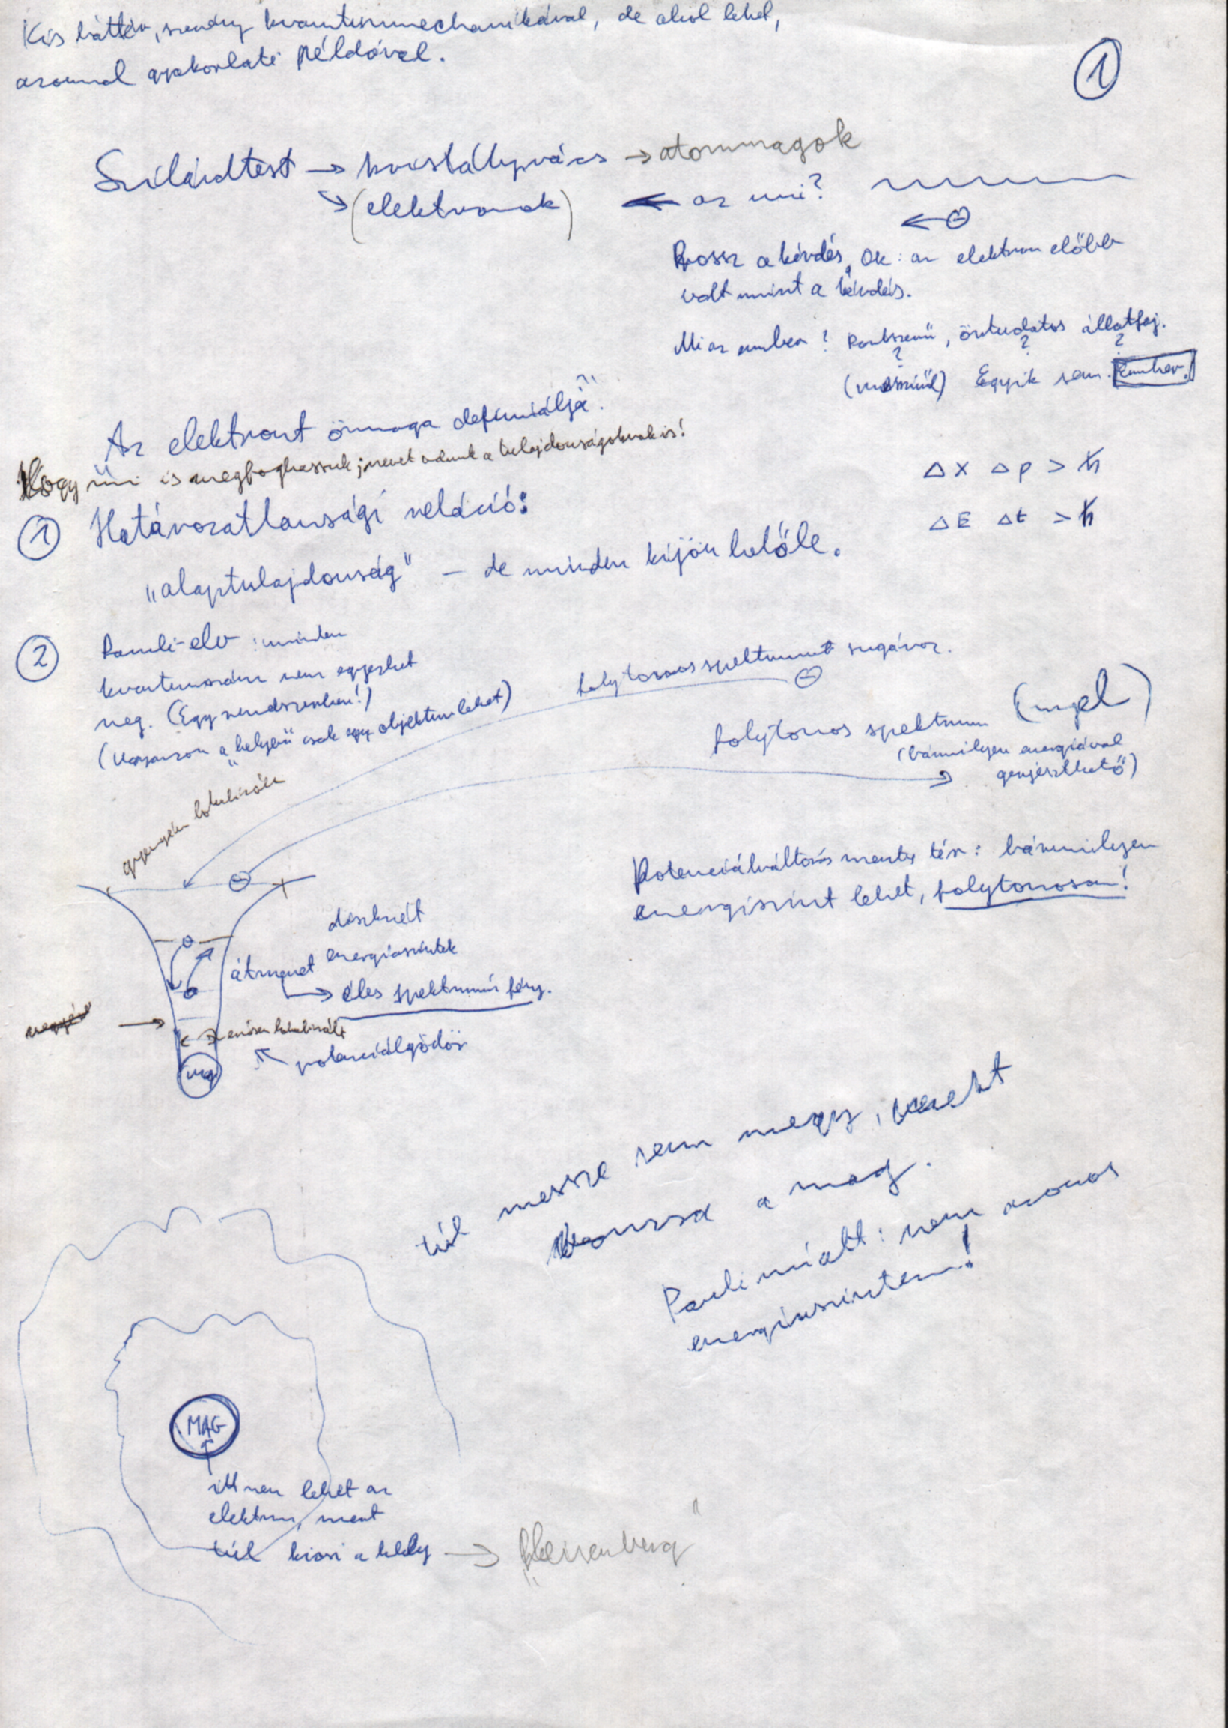 Kis háttér, kvantummechanikával, de ahol lehet,
azonnal gyakorlati példával.
1
Szilárdtest → kristályrács → atommagok
(elektronok) ← az mi?
Rossz a kérdés, Ok: az elektron előbb
volt mint a kérdés.
Mi az ember? öntudatos állatfaj.
? ? ?
Egyik sem. Ember.
Az elektront önmaga definiálja".
Hogy mi is megfoghassuk, nevet adunk a tulajdonságoknak is!
Δx Δp > ħ
ΔE Δt > ħ
1 Határozatlansági reláció:
„alaptulajdonság" – de minden kijön belőle.
2 Pauli-elv: minden
kvantumszám nem egyezhet
meg. (Egy rendszerben!)
(Ugyanazon a „helyen" csak egy objektum lehet)
folytonos spektrumot sugároz.
folytonos spektrum (nyel)
(bármilyen energiával
gerjeszthető)
gyengén lokalizált
Potenciálváltozás mentes tér: bármilyen
energiaszint lehet, folytonosan!
diszkrét
energiaszintek
átmenet
éles spektrumú fény.
erősen lokalizált
potenciálgödör
mag
túl messze sem megy, mert
vonzza a mag.
Pauli miatt: nem azonos
energiaszinten!
MAG
itt nem lehet az
elektron, mert
túl kicsi a hely → „Heisenberg"